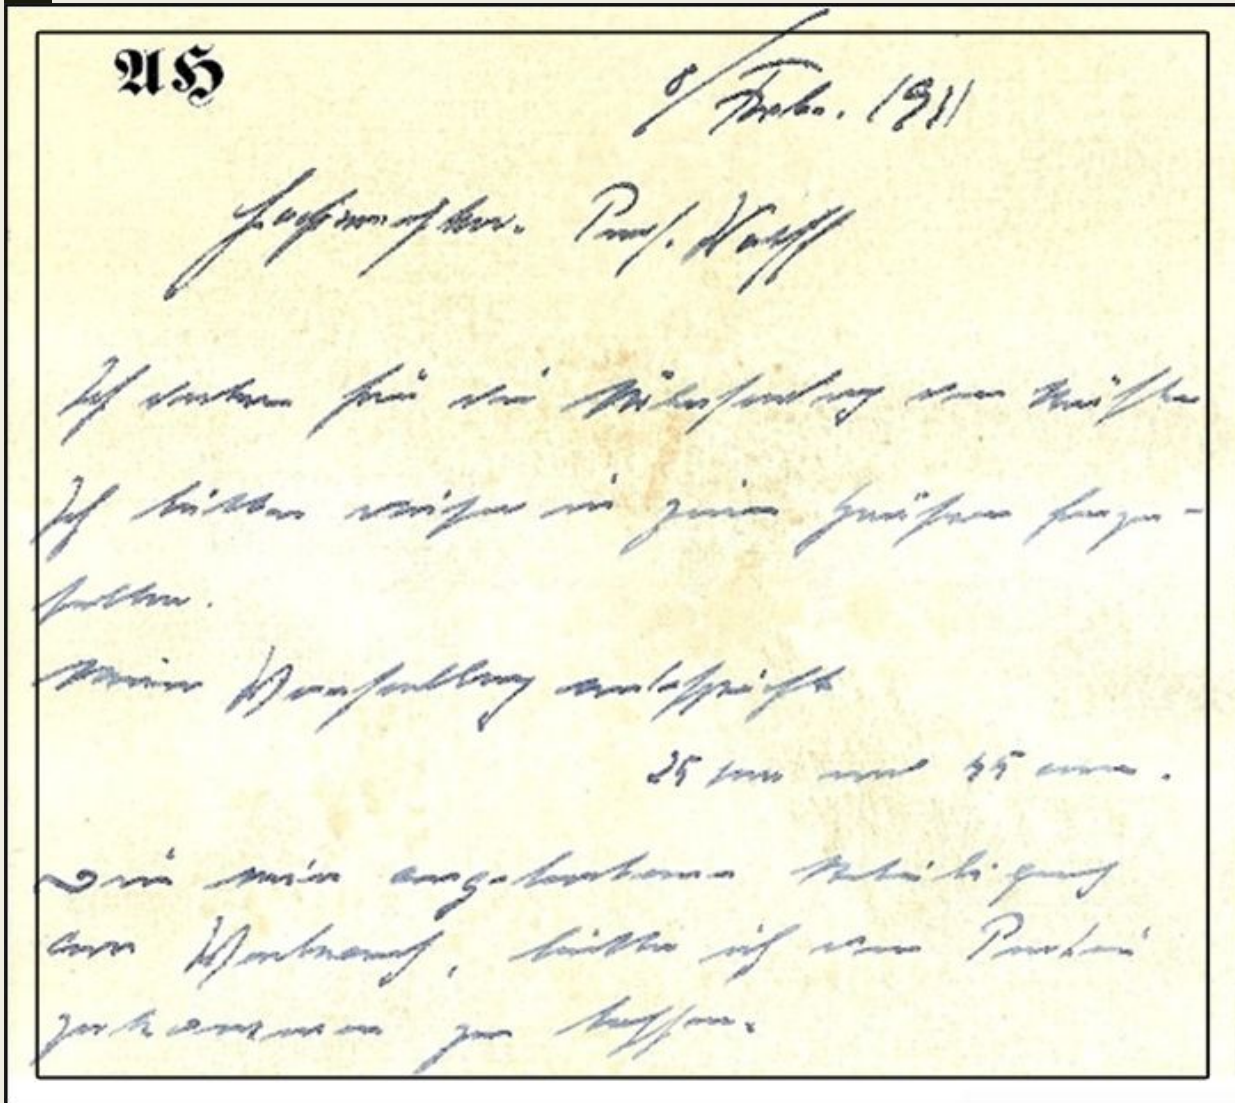 AH
8/ Febr. 1931
Prof. Wolff
Ich danke für die Übersendung der
Ich bitte diese in zwei Größen herzu-
stellen.
Meiner Vorstellung entspricht
25 cm und 45 cm.
Die mir angebotene Beteiligung
am Verbrauch, bitte ich der Partei
zukommen zu lassen.